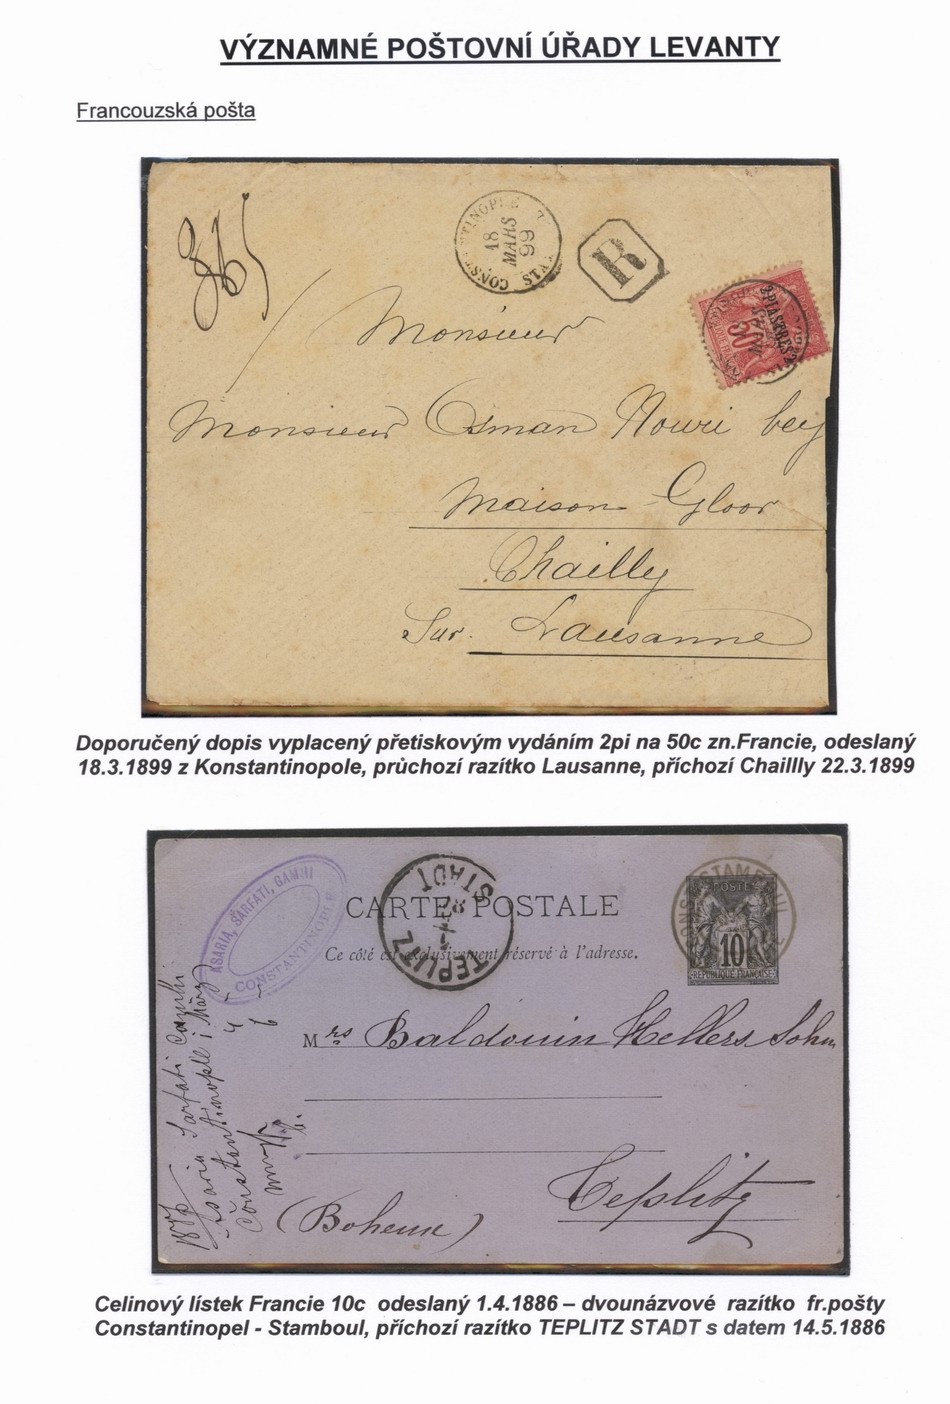 VÝZNAMNÉ POŠTOVNÍ ÚŘADY LEVANTY
Francouzská pošta
865
CONSTANTINOPLE
18
MARS
99
R
2 PIASTRES
50
Monsieur
Monsieur Osman Nouri bey
Maison Gloor
Chailly
Sur Lausanne
Doporučený dopis vyplacený přetiskovým vydáním 2pi na 50c zn.Francie, odeslaný
18.3.1899 z Konstantinopole, průchozí razítko Lausanne, příchozí Chaillly 22.3.1899
ASARIA, SARFATI, GAMHI
CONSTANTINOPLE
TEPLITZ
STADT
STAMBOUL
CARTE POSTALE
Ce côté est exclusivement réservé à l'adresse.
POSTES
10
REPUBLIQUE FRANCAISE
Mrs Baldouin Hellers Sohn
Teplitz
(Boheme)
1886
Asaria Sarfati Camhi
Constantinople
Celinový lístek Francie 10c odeslaný 1.4.1886 – dvounázvové razítko fr.pošty
Constantinopel - Stamboul, příchozí razítko TEPLITZ STADT s datem 14.5.1886